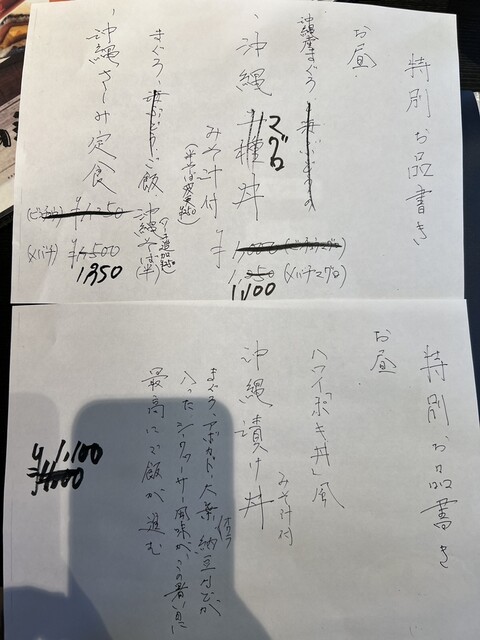 特別お品書き
お昼
沖縄産まぐろ
沖縄マグロ丼
みそ汁付
¥1,000
1,050(メバチマグロ)
1,100
まぐろ、
ご飯
沖縄そば(半)
沖縄さしみ定食
¥1,250
(メバチ)¥1,500
1,350
特別お品書き
お昼
ハワイ「ポキ丼」風
沖縄漬け丼
みそ汁付
まぐろ、アボカド、大葉、納豆などが
入った、シークヮーサー風味が、この暑い日に
最高にご飯が進む
¥1,100